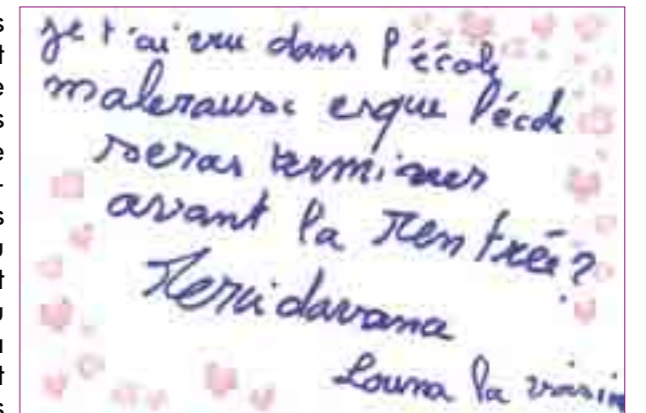 je t'ai vu dans l'éécole
maleraux esque l'école
seras terminer
avant la Rentrée?
Merci davance
Louna la voisin